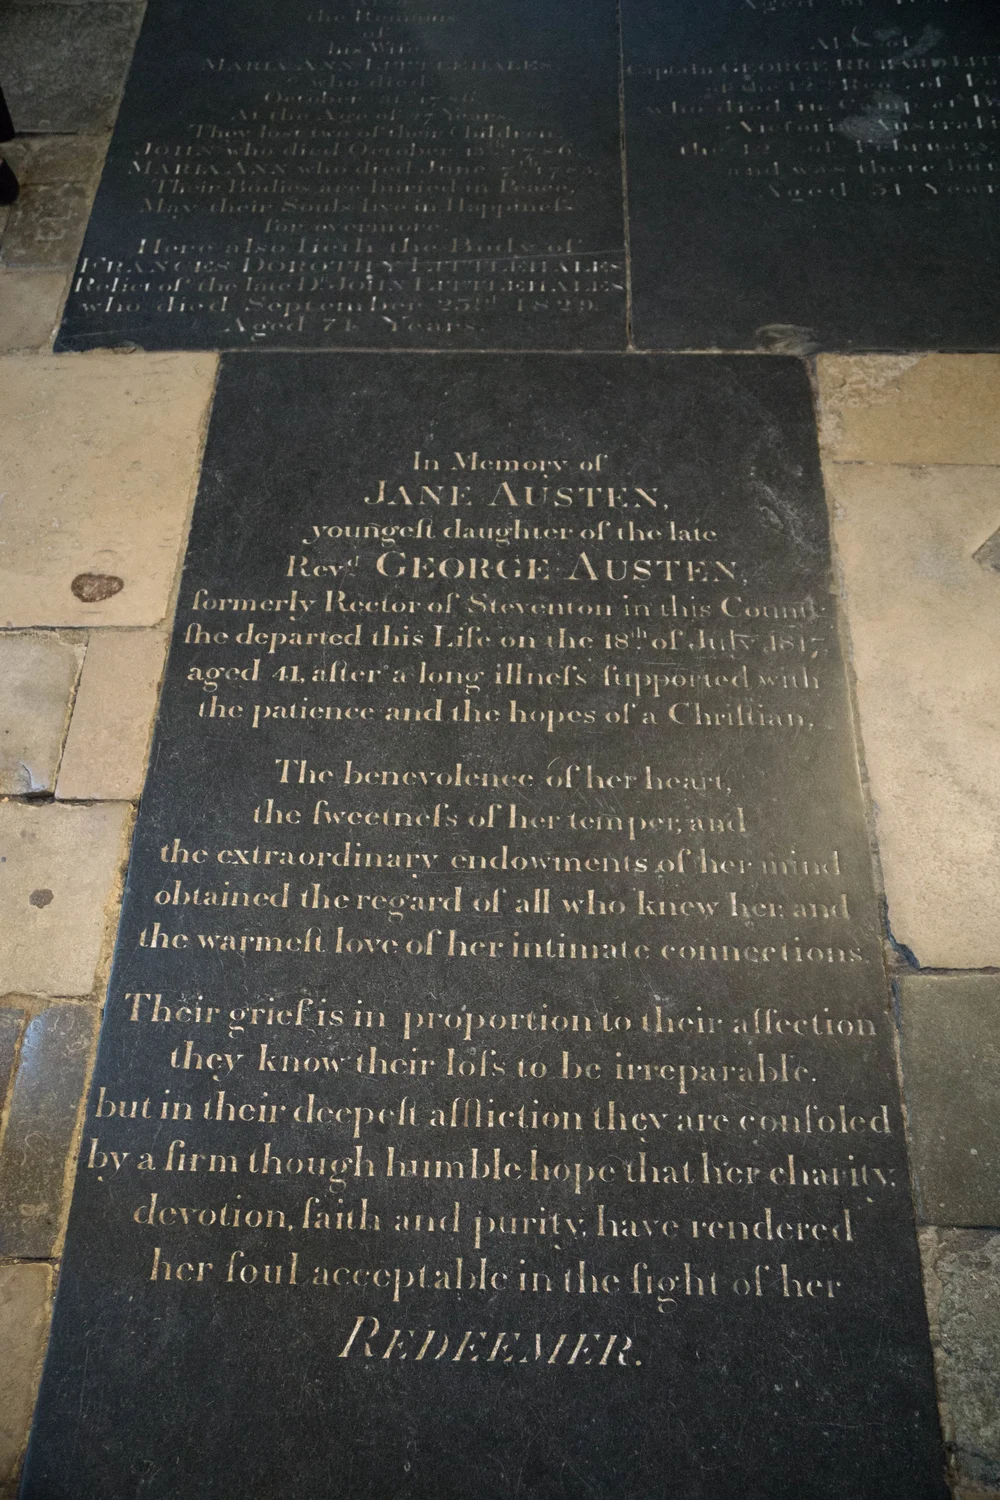 the Remains
of
his Wife
MARIA ANN LITTLEHALES
who died
October
At the Age of 27 Years.
They lost two of their Children
JOHN who died October
MARIA ANN who died June
Their Bodies are buried in Peace,
May their Souls live in Happineſs
for evermore.
Here also lieth the Body of
FRANCES DOROTHY LITTLEHALES
Relict of the late Dr. JOHN LITTLEHALES
who died September 25th 1829.
Aged 74 Years.
Aged
Also of
Captain GEORGE RICHARD
of the 12th
who died in Camp at
Victoria
the 12 of
and was there
Aged 31
In Memory of
JANE AUSTEN,
youngeſt daughter of the late
Revd. GEORGE AUSTEN,
formerly Rector of Steventon in this County
ſhe departed this Life on the 18th. of July 1817,
aged 41, after a long illneſs ſupported with
the patience and the hopes of a Chriſtian,
The benevolence of her heart,
the ſweetneſs of her temper, and
the extraordinary endowments of her mind
obtained the regard of all who knew her, and
the warmeſt love of her intimate connections.
Their grief is in proportion to their affection
they know their loſs to be irreparable,
but in their deepeſt affliction they are conſoled
by a firm though humble hope that her charity,
devotion, faith and purity, have rendered
her ſoul acceptable in the ſight of her
REDEEMER.